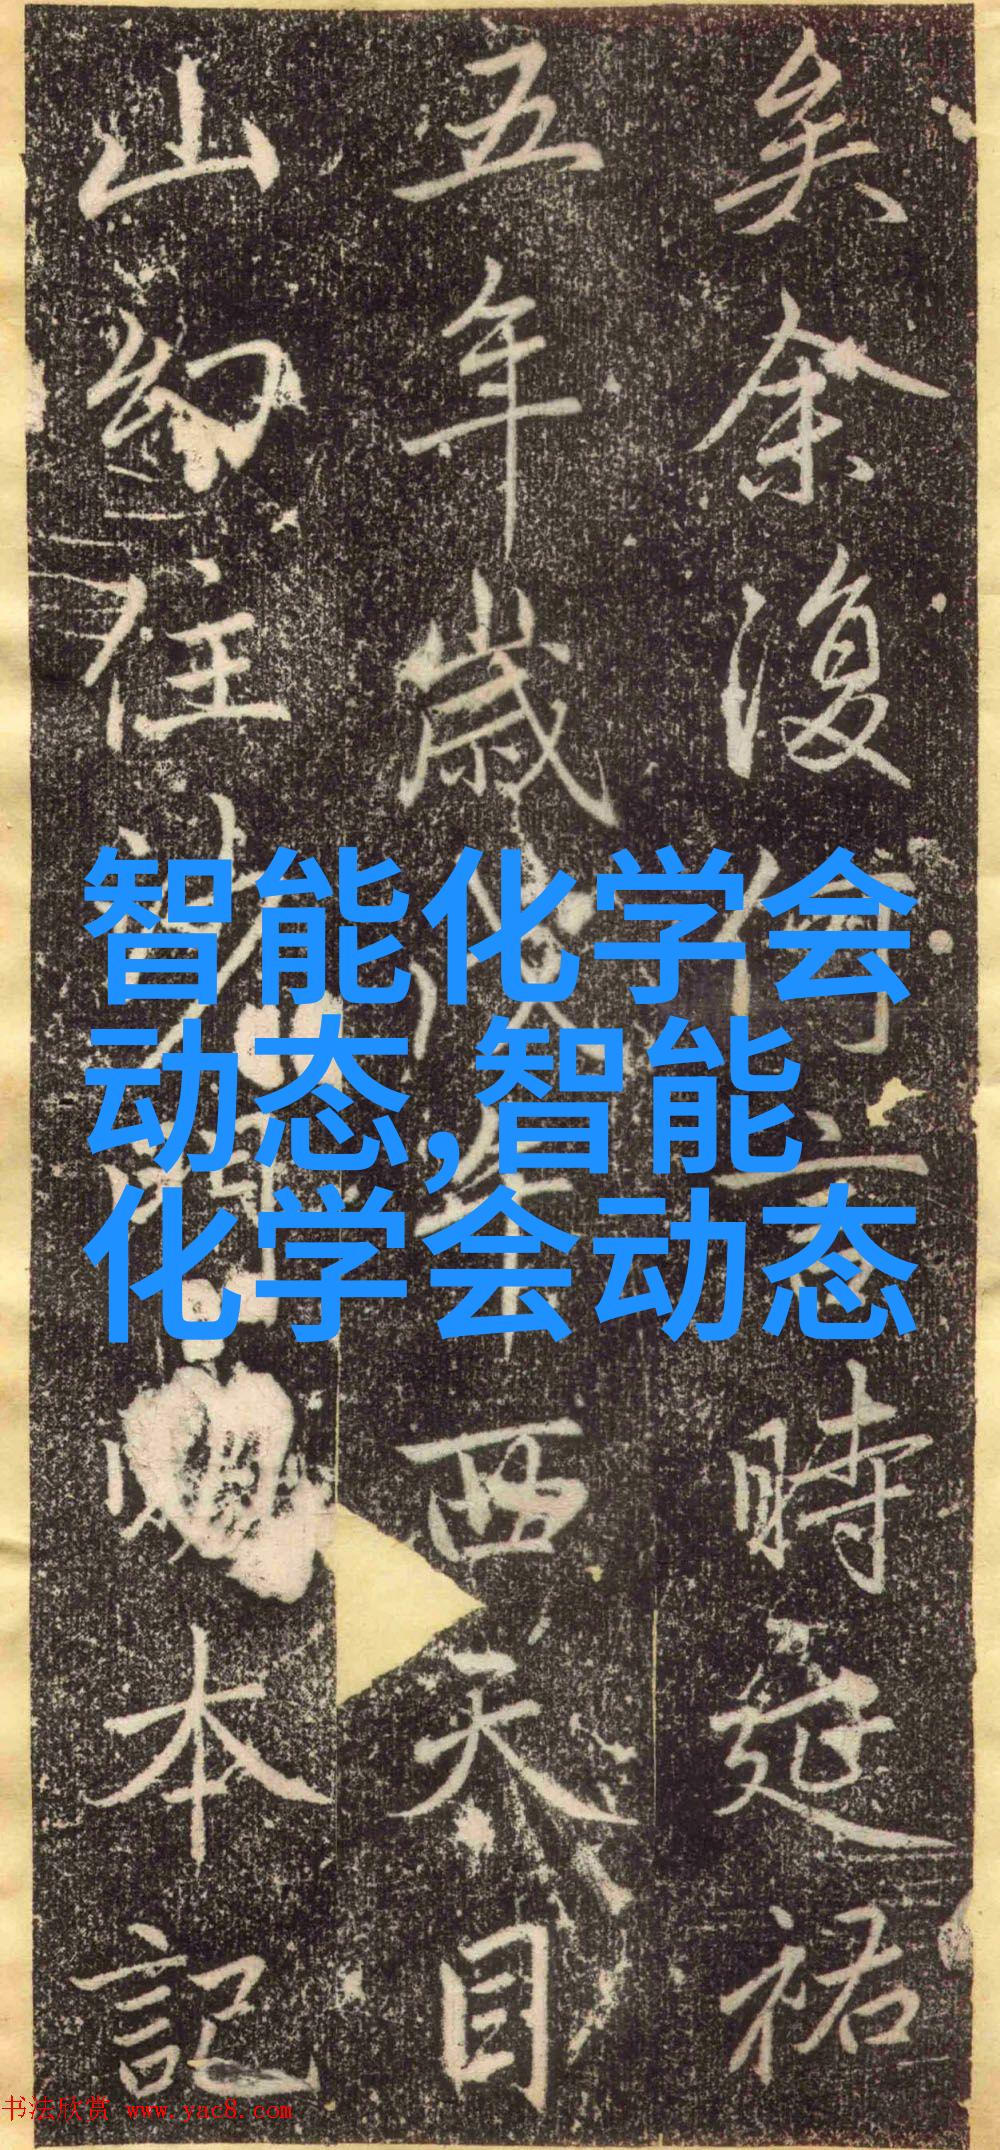 矣余復何言時延祐
五年歲午西天目
山幻住門本記
智能化学会
动态,智能
化学会动态
书法欣赏 www.yac8.com